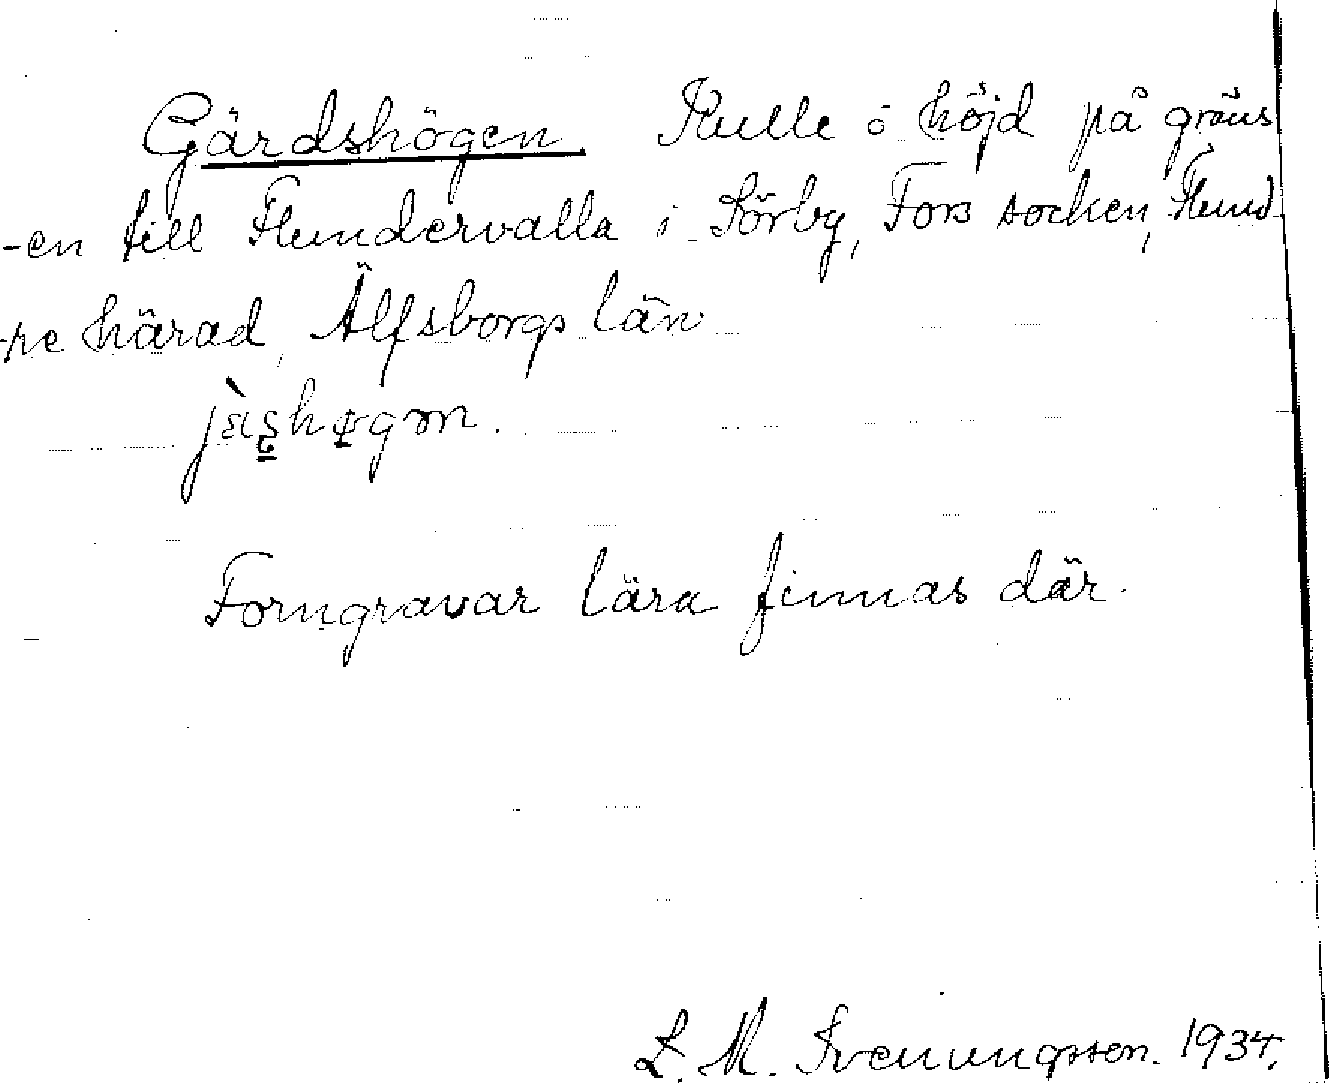 Gärdshögen. Kulle o höjd på gräns
-en till Flundervalla i Sörby, Fors socken, Flund
-re härad, Älfsborgs län
Forngravar lära finnas där.
L. M. Svenungsson. 1934.